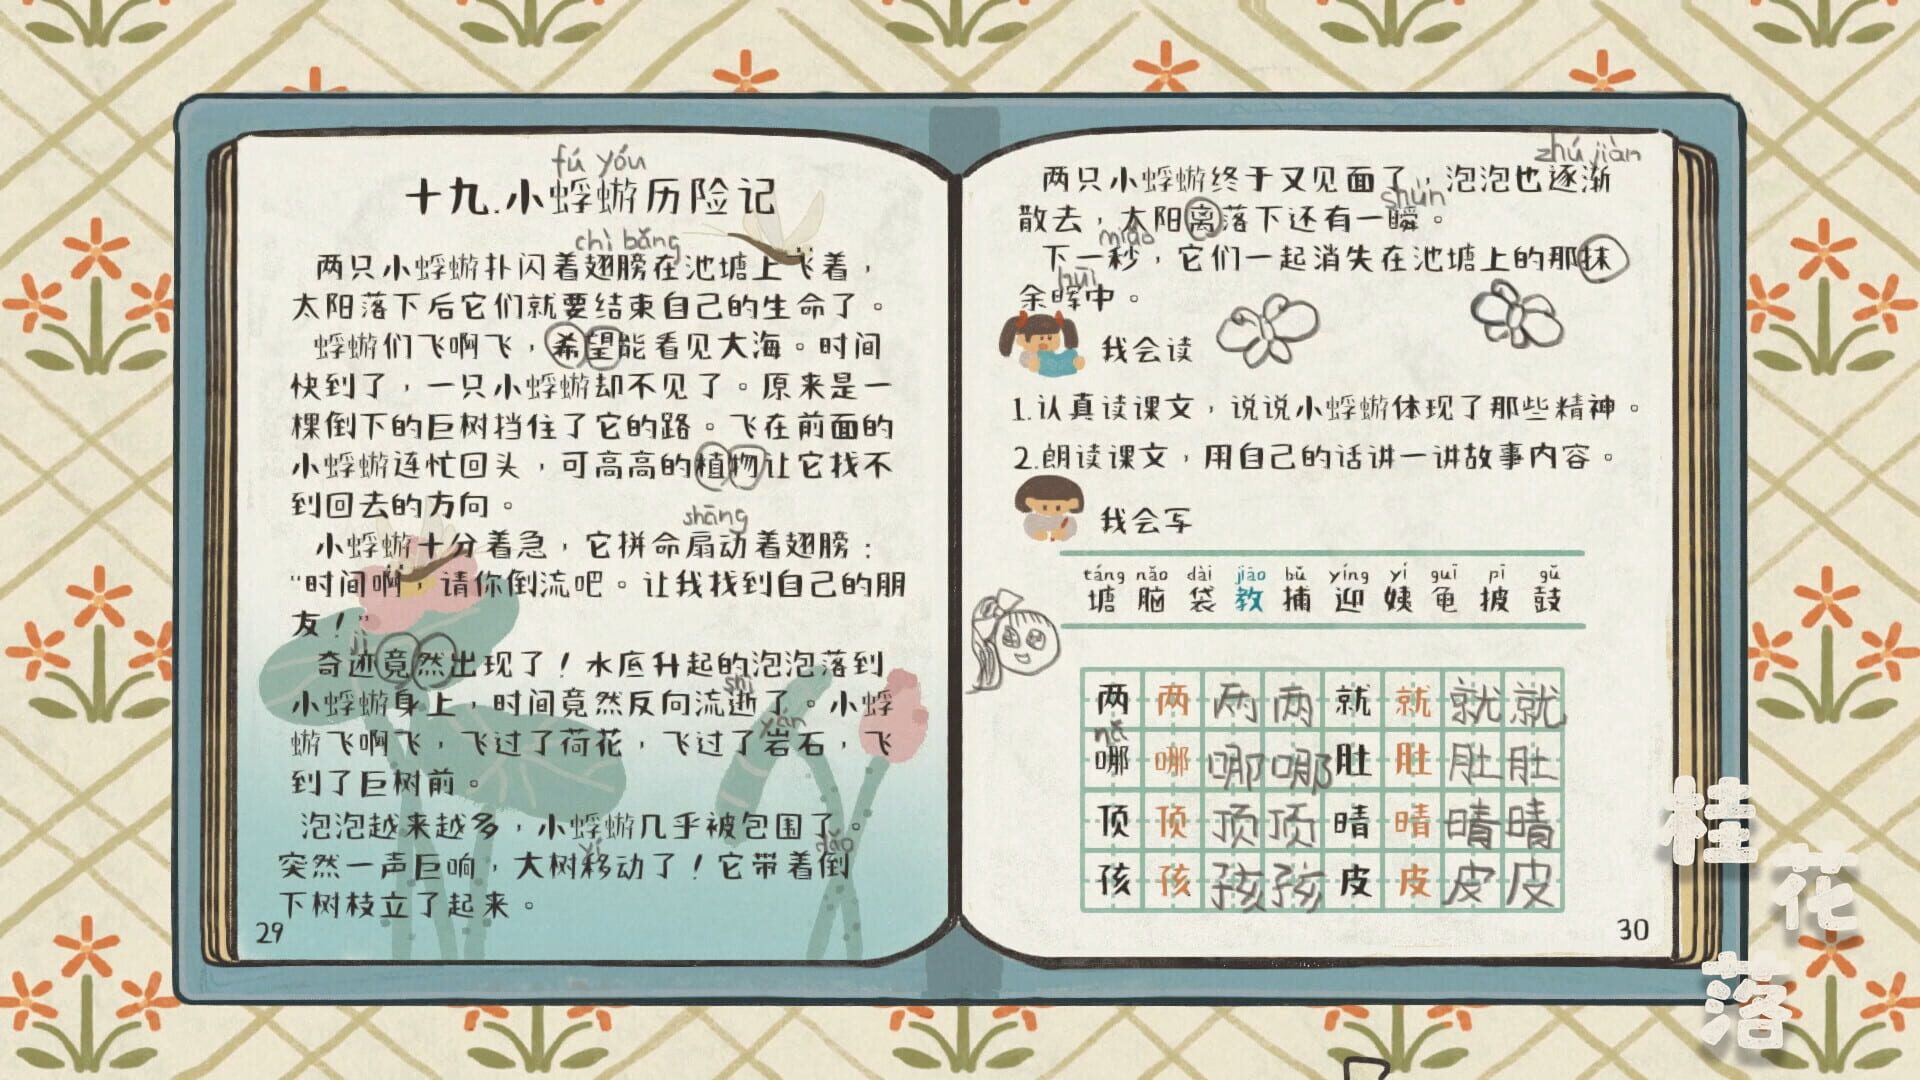 fú yóu
十九.小蜉蝣历险记
chì bǎng
两只小蜉蝣扑闪着翅膀在池塘上飞着，
太阳落下后它们就要结束自己的生命了。
蜉蝣们飞啊飞，希望能看见大海。时间
快到了，一只小蜉蝣却不见了。原来是一
棵倒下的巨树挡住了它的路。飞在前面的
小蜉蝣连忙回头，可高高的植物让它找不
到回去的方向。
shāng
小蜉蝣十分着急，它拼命扇动着翅膀：
“时间啊，请你倒流吧。让我找到自己的朋
友！”
jì
奇迹竟然出现了！水底升起的泡泡落到
shì
小蜉蝣身上，时间竟然反向流逝了。小蜉
yán
蝣飞啊飞，飞过了荷花，飞过了岩石，飞
到了巨树前。
泡泡越来越多，小蜉蝣几乎被包围了。
yí dǎo
突然一声巨响，大树移动了！它带着倒
下树枝立了起来。
29
zhú jiàn
两只小蜉蝣终于又见面了，泡泡也逐渐
shùn
散去，太阳离落下还有一瞬。
miǎo
下一秒，它们一起消失在池塘上的那抹
huī
余晖中。
我会读
1.认真读课文，说说小蜉蝣体现了那些精神。
2.朗读课文，用自己的话讲一讲故事内容。
我会写
táng nǎo dài jiāo bǔ yíng yí guī pī gǔ
塘 脑 袋 教 捕 迎 姨 龟 披 鼓
两 两 两 两 就 就 就 就
nǎ
哪 哪 哪 哪 肚 肚 肚 肚
顶 顶 顶 顶 晴 晴 晴 晴
孩 孩 孩 孩 皮 皮 皮 皮
30
桂花落